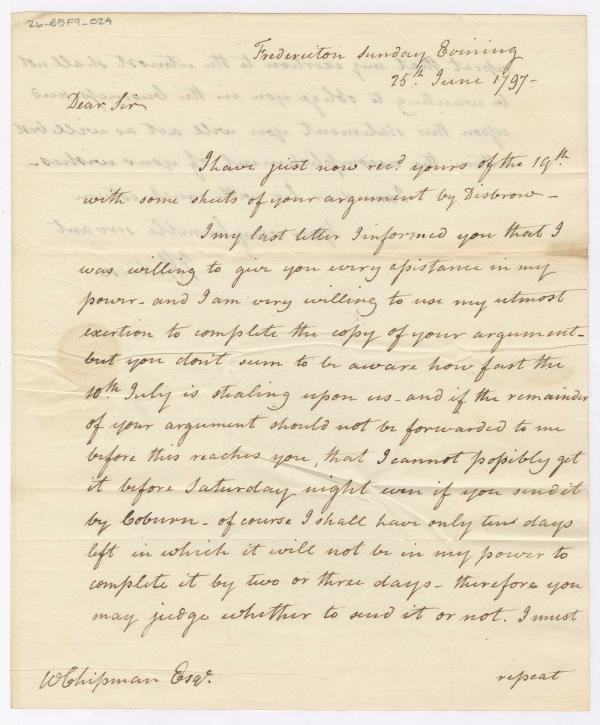 26-65F9-024
Fredericton Sunday Evening
25th June 1797-
Dear Sir
I have just now recd. yours of the 19th
with some sheets of your argument by Disbrow-
I my last letter I informed you that I
was willing to give you every assistance in my
power- and I am very willing to use my utmost
exertion to complete the copy of your argument-
but you don't seem to be aware how fast the
10th July is stealing upon us- and if the remainder
of your argument should not be forwarded to me
before this reaches you, that I cannot possibly get
it before Saturday night even if you send it
by Coburn- of course I shall have only days
left in which it will not be in my power to
complete it by two or three days- therefore you
may judge whether to send it or not. I must
WChipman Esqr.
repeat